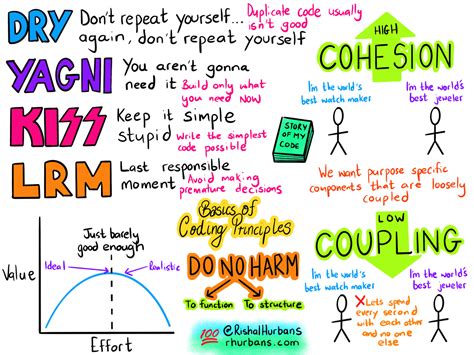 DRY
Don't repeat yourself...
again, don't repeat yourself
Duplicate code usually
isn't good
YAGNI
You aren't gonna
need it
Build only what
you need NOW
KISS
Keep it simple
stupid
Write the simplest
code possible
LRM
Last responsible
moment
Avoid making
premature decisions
STORY
OF MY
CODE
HIGH
COHESION
I'm the world's
best watch maker
I'm the world's
best jeweler
We want purpose specific
components that are loosely
coupled
LOW
COUPLING
I'm the world's
best watch maker
I'm the world's
best jeweler
Lets spend
every second
with each other
and no one
else
Basics of
Coding Principles
DO NO HARM
To function
To structure
100
@RishalHurbans
rhurbans.com
Just barely
good enough
Ideal
Realistic
Value
Effort